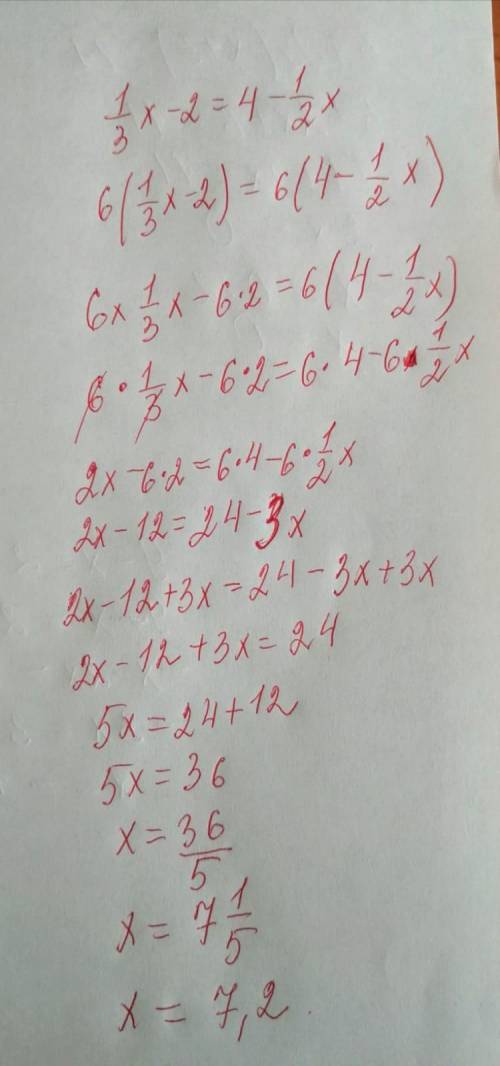 1/3 x - 2 = 4 - 1/2 x
6(1/3 x - 2) = 6(4 - 1/2 x)
6 x 1/3 x - 6·2 = 6(4 - 1/2 x)
6 · 1/3 x - 6·2 = 6·4 - 6·1/2 x
2x - 6·2 = 6·4 - 6·1/2 x
2x - 12 = 24 - 3x
2x - 12 + 3x = 24 - 3x + 3x
2x - 12 + 3x = 24
5x = 24 + 12
5x = 36
x = 36/5
x = 7 1/5
x = 7,2.